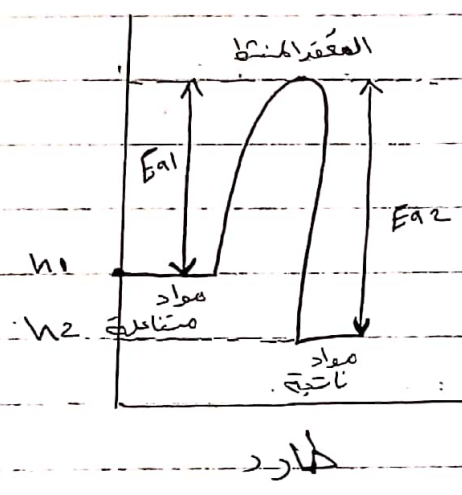 المعقد المنشط
Ea1
Ea2
h1
مواد
متفاعلة
h2
مواد
ناتجة
طارد